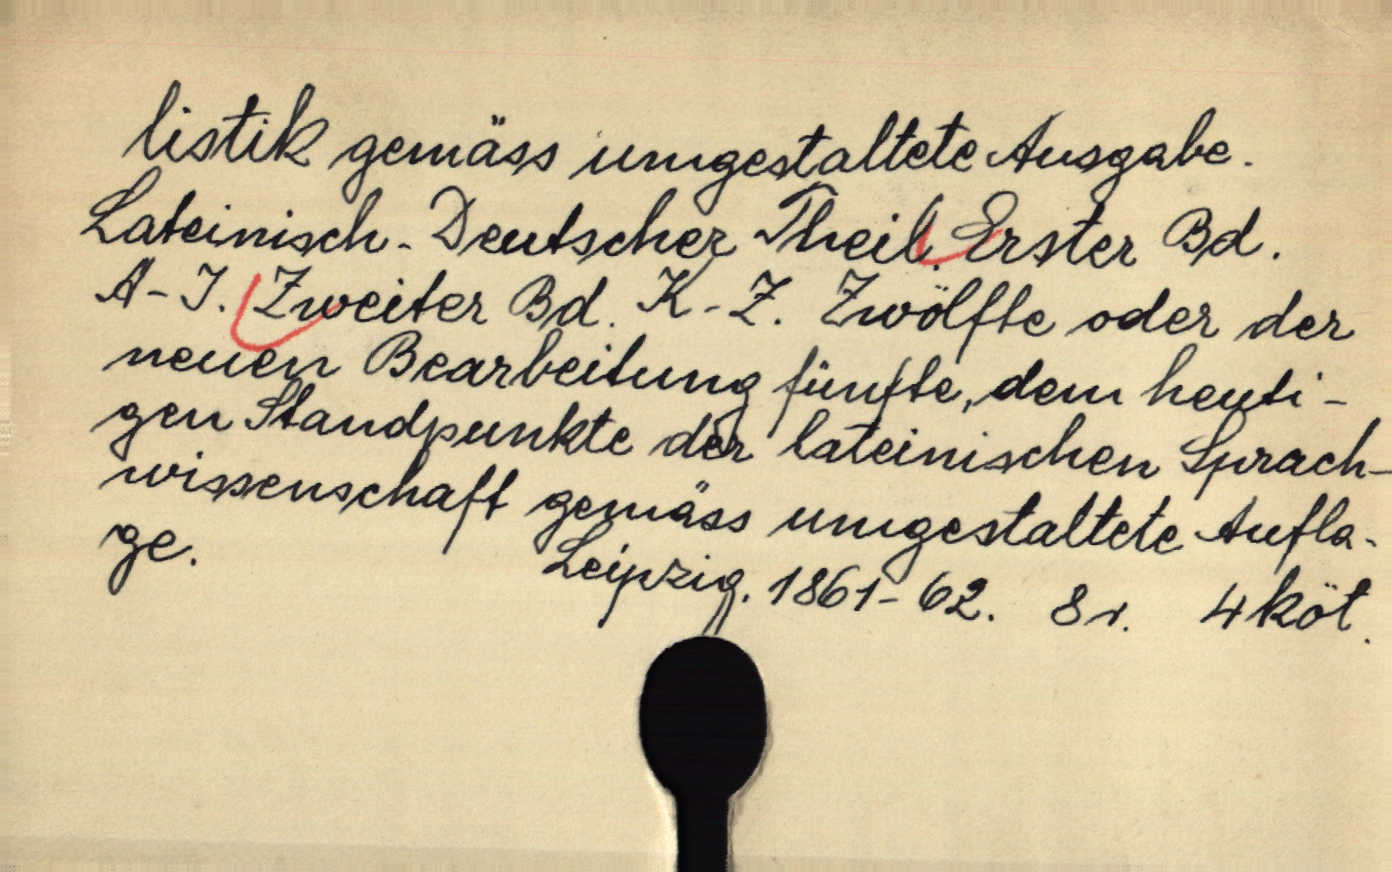 listik gemäss umgestaltete Ausgabe.
Lateinisch-Deutscher Theil. Erster Bd.
A-J. Zweiter Bd. K-Z. Zwölfte oder der
neuen Bearbeitung fünfte, dem heuti-
gen Standpunkte der lateinischen Sprach-
wissenschaft gemäss umgestaltete Aufla-
ge.
Leipzig. 1861-62. 8r. 4 köt.